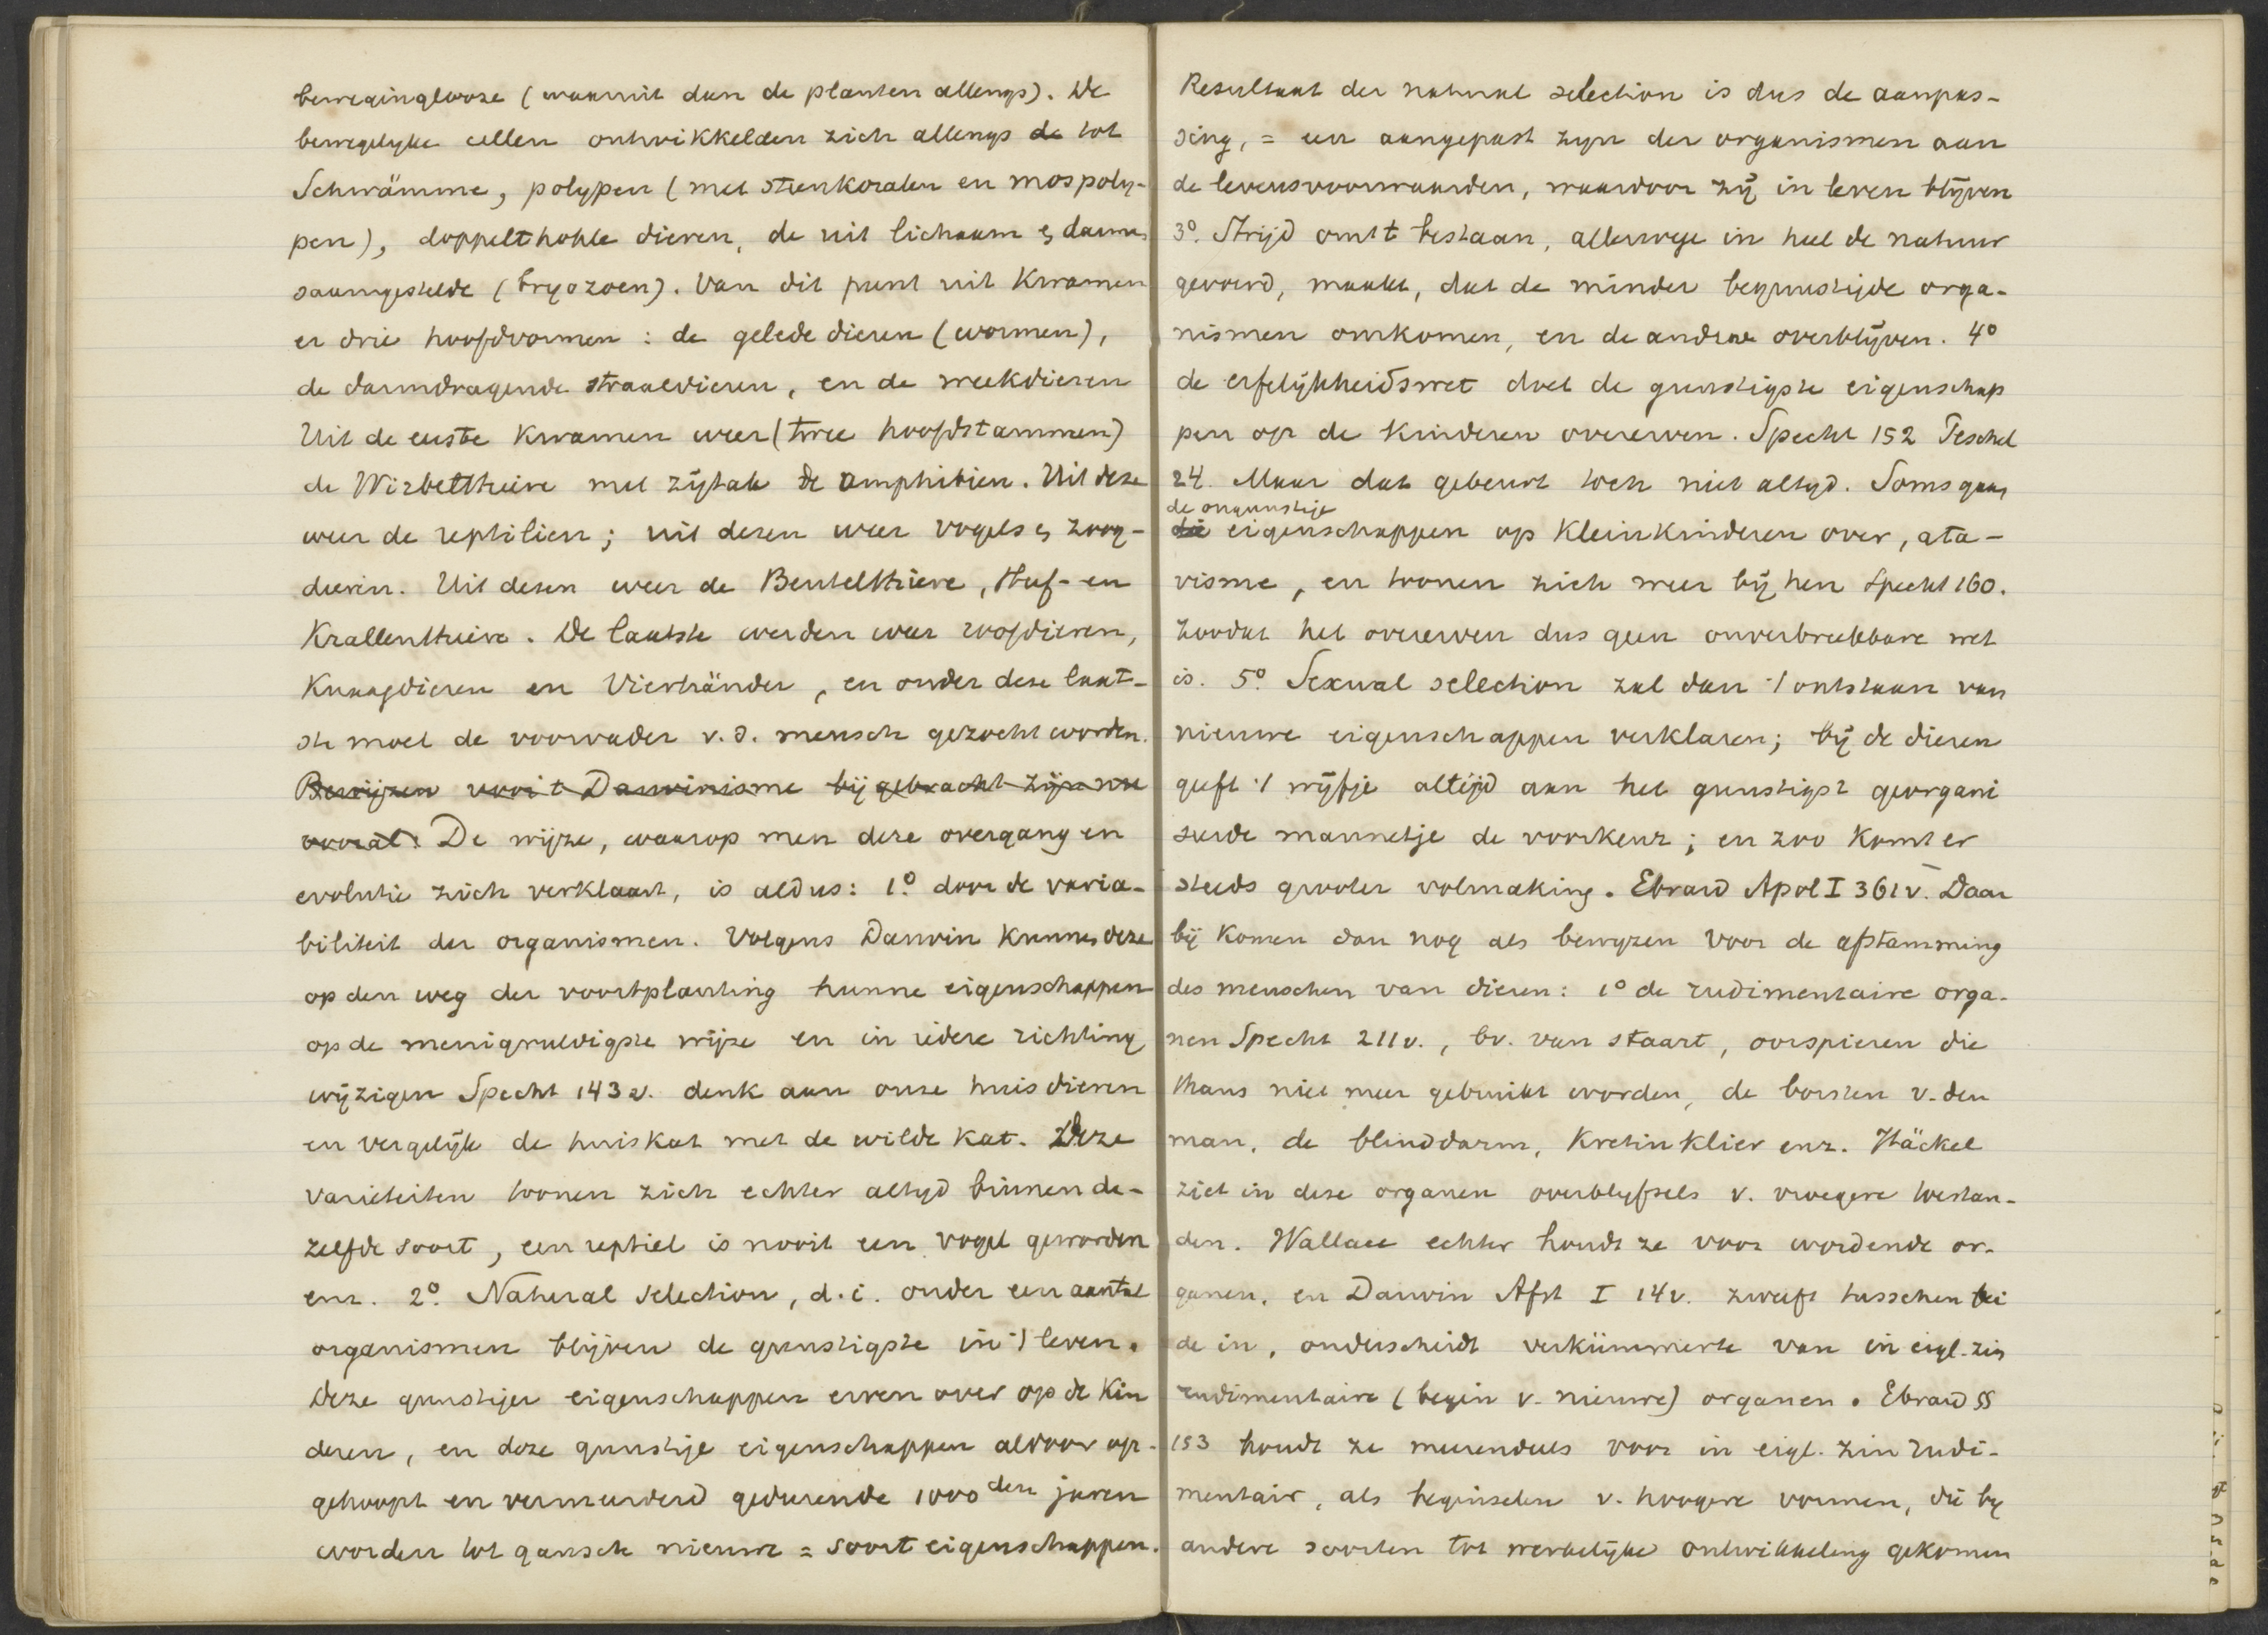 bewegingloose (waaruit dan de planten allengs). De
bewegelyke cellen ontwikkelden zich allengs de tot
Schwämme, polypen (met steenkoralen en mospoly-
pen), doppelthohle dieren, de uit lichaam & darm
saamgestelde (bryozoen). Van dit punt uit kwamen
er drie hoofdvormen: de gelede dieren (wormen),
de darmdragende straaldieren, en de weekdieren
Uit de eerste kwamen weer (twee hoofdstammen)
de Wirbelthiere met zijtak de amphibien. Uit deze
weer de reptilien; uit dezen weer vogels & zoog-
dieren. Uit dezen weer de Beutelthiere, Huf- en
Krallenthiere. De laatste werden weer roofdieren,
Knaagdieren en Vierhänder, en onder deze laat-
ste moet de voorvader v.d. mensch gezocht worden.
Bewijzen voor 't Darwinisme bijgebracht zijn nu
vooral: De wijze, waarop men deze overgang en
evolutie zich verklaart, is aldus: 1º. door de varia-
biliteit der organismen. Volgens Darwin kunnen deze
op den weg der voortplanting hunne eigenschappen
op de menigvuldigste wijze en in iedere richting
wijzigen Specht 143 v. denk aan onze huisdieren
en vergelijk de huiskat met de wilde kat. Deze
varieteiten toonen zich echter altyd binnen de-
zelfde soort, een reptiel is nooit een vogel geworden
enz. 2º. Natural selection, d.i. onder een aantal
organismen blijven de gunstigste in 't leven.
Deze gunstiger eigenschappen erven over op de kin
deren, en deze gunstige eigenschappen aldoor op-
gehoopt en vermeerderd gedurende 1000den jaren
worden tot gansch nieuwe = soort eigenschappen.
Resultaat der natural selection is dus de aanpas-
sing, = een aangepast zyn der organismen aan
de levensvoorwaarden, waardoor zij in leven blijven
3º. Strijd om 't bestaan, allerwege in heel de natuur
gevoerd, maakt, dat de minder begunstigde orga-
nismen omkomen, en de andere overblijven. 4º
de erfelijkheidswet doet de gunstigste eigenschap
pen op de kinderen overerven. Specht 152 Peschel
24. Maar dat gebeurt toch niet altyd. Soms gaan
de ongunstige
die eigenschappen op kleinkinderen over, ata-
visme, en toonen zich weer bij hen Specht 160.
zoodat het overerven dus geen onverbreekbare wet
is. 5º. Sexual selection zal dan 't ontstaan van
nieuwe eigenschappen verklaren; bij de dieren
geeft 't wijfje altijd aan het gunstigst georgani
seerde mannetje de voorkeur; en zoo komt er
steeds grooter volmaking. Ebrard Apol I 361 v. Daar
bij komen dan nog als bewyzen voor de afstamming
des menschen van dieren: 1º de rudimentaire orga-
nen Specht 211 v., bv. van staart, oorspieren die
thans niet meer gebruikt worden, de borsten v. den
man, de blinddarm, Kretinklier enz. Häckel
ziet in deze organen overblyfsels v. vroegere toestan-
den. Wallace echter houdt ze voor wordende or-
ganen, en Darwin Afst I 14 v. zweeft tusschen bei
de in, onderscheidt verkümmerte van in eigl. zin
rudimentaire (begin v. nieuwe) organen. Ebrard §§
153 houdt ze meerendeels voor in eigl. zin rudi-
mentair, als beginselen v. hoogere vormen, die by
andere soorten tot werkelijke ontwikkeling gekomen